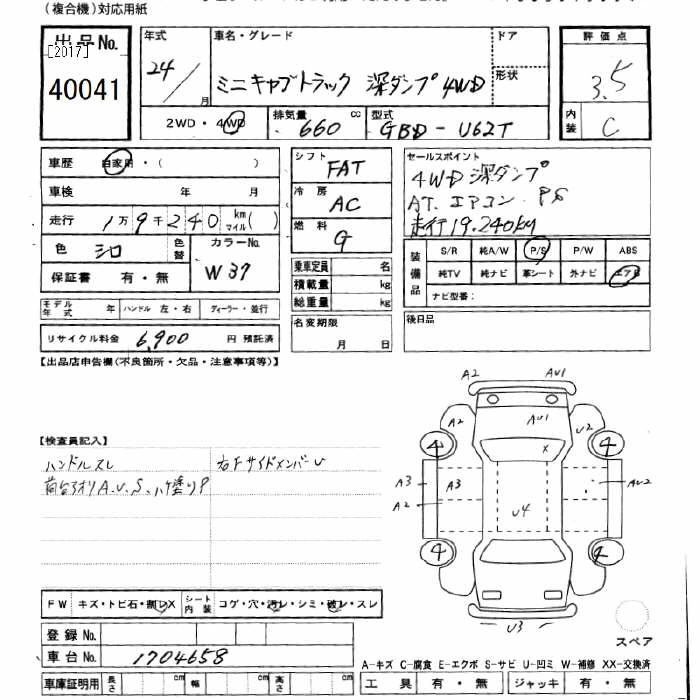 (複合機)対応用紙
出品No.
[2017]
40041
年式
24/
月
車名・グレード
ミニキャブトラック 深ダンプ 4WD
ドア
形状
評価点
3.5
内装
C
2WD・4WD
排気量
660
cc
型式
GBD-U62T
車歴
自家用・( )
車検
年 月
走行
1万9千240
km
マイル
( )
色
シロ
色替
カラーNo.
W37
保証書
有・無
モデル年式
年
ハンドル 左・右
ディーラー・並行
リサイクル料金
6,900
円 預託済
シフト
FAT
冷房
AC
燃料
G
乗車定員
名
積載量
kg
総重量
kg
名変期限
月 日
セールスポイント
4WD 深ダンプ
AT. エアコン. PS
走行19.240km
装備品
S/R 純A/W P/S P/W ABS
純TV 純ナビ 革シート 外ナビ エアB
ナビ型番:
後日品
【出品店申告欄(不良箇所・欠品・注意事項等)】
【検査員記入】
ハンドルスレ
右Fサイドメンバー U
荷台アオリ A.U.S. ハケ塗りP
A2
AU1
A2
AU1
U2
X
4
4
A3
A3
A2
AU2
U4
4
4
U3
スペア
FW
キズ・トビ石・無レX
シート内装
コゲ・穴・汚レ・シミ・破レ・スレ
登録No.
車台No.
1704658
A-キズ C-腐食 E-エクボ S-サビ U-凹ミ W-補修 XX-交換済
車庫証明用
長さ
cm
幅
cm
高さ
cm
工具
有・無
ジャッキ
有・無